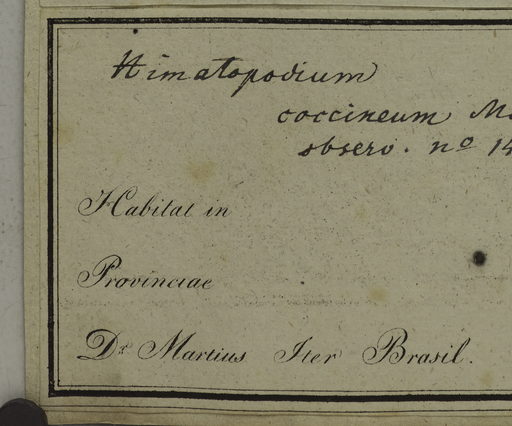 Himatopodium
coccineum M
observ. nº 14
Habitat in
Provinciae
Dr. Martius Iter Brasil.